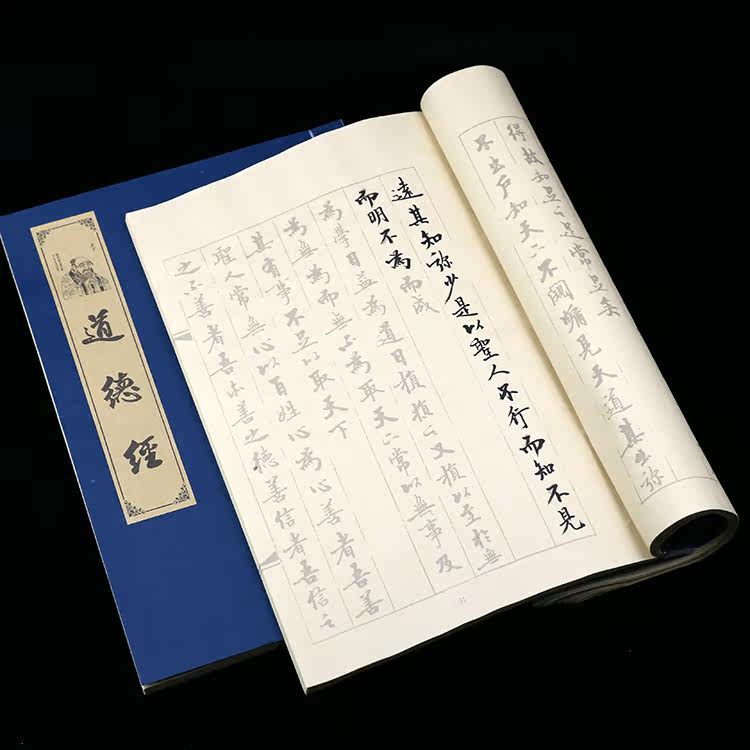 道德經
得故知足之足常足矣
不出戶知天下不闚牖見天道其出弥
遠其知弥少是以聖人不行而知不見
而明不為而成
為學日益為道日損損之又損以至於無
為無為而無不為取天下常以無事及
其有事不足以取天下
聖人常無心以百姓心為心善者吾善
之不善者吾亦善之德善信者吾信之